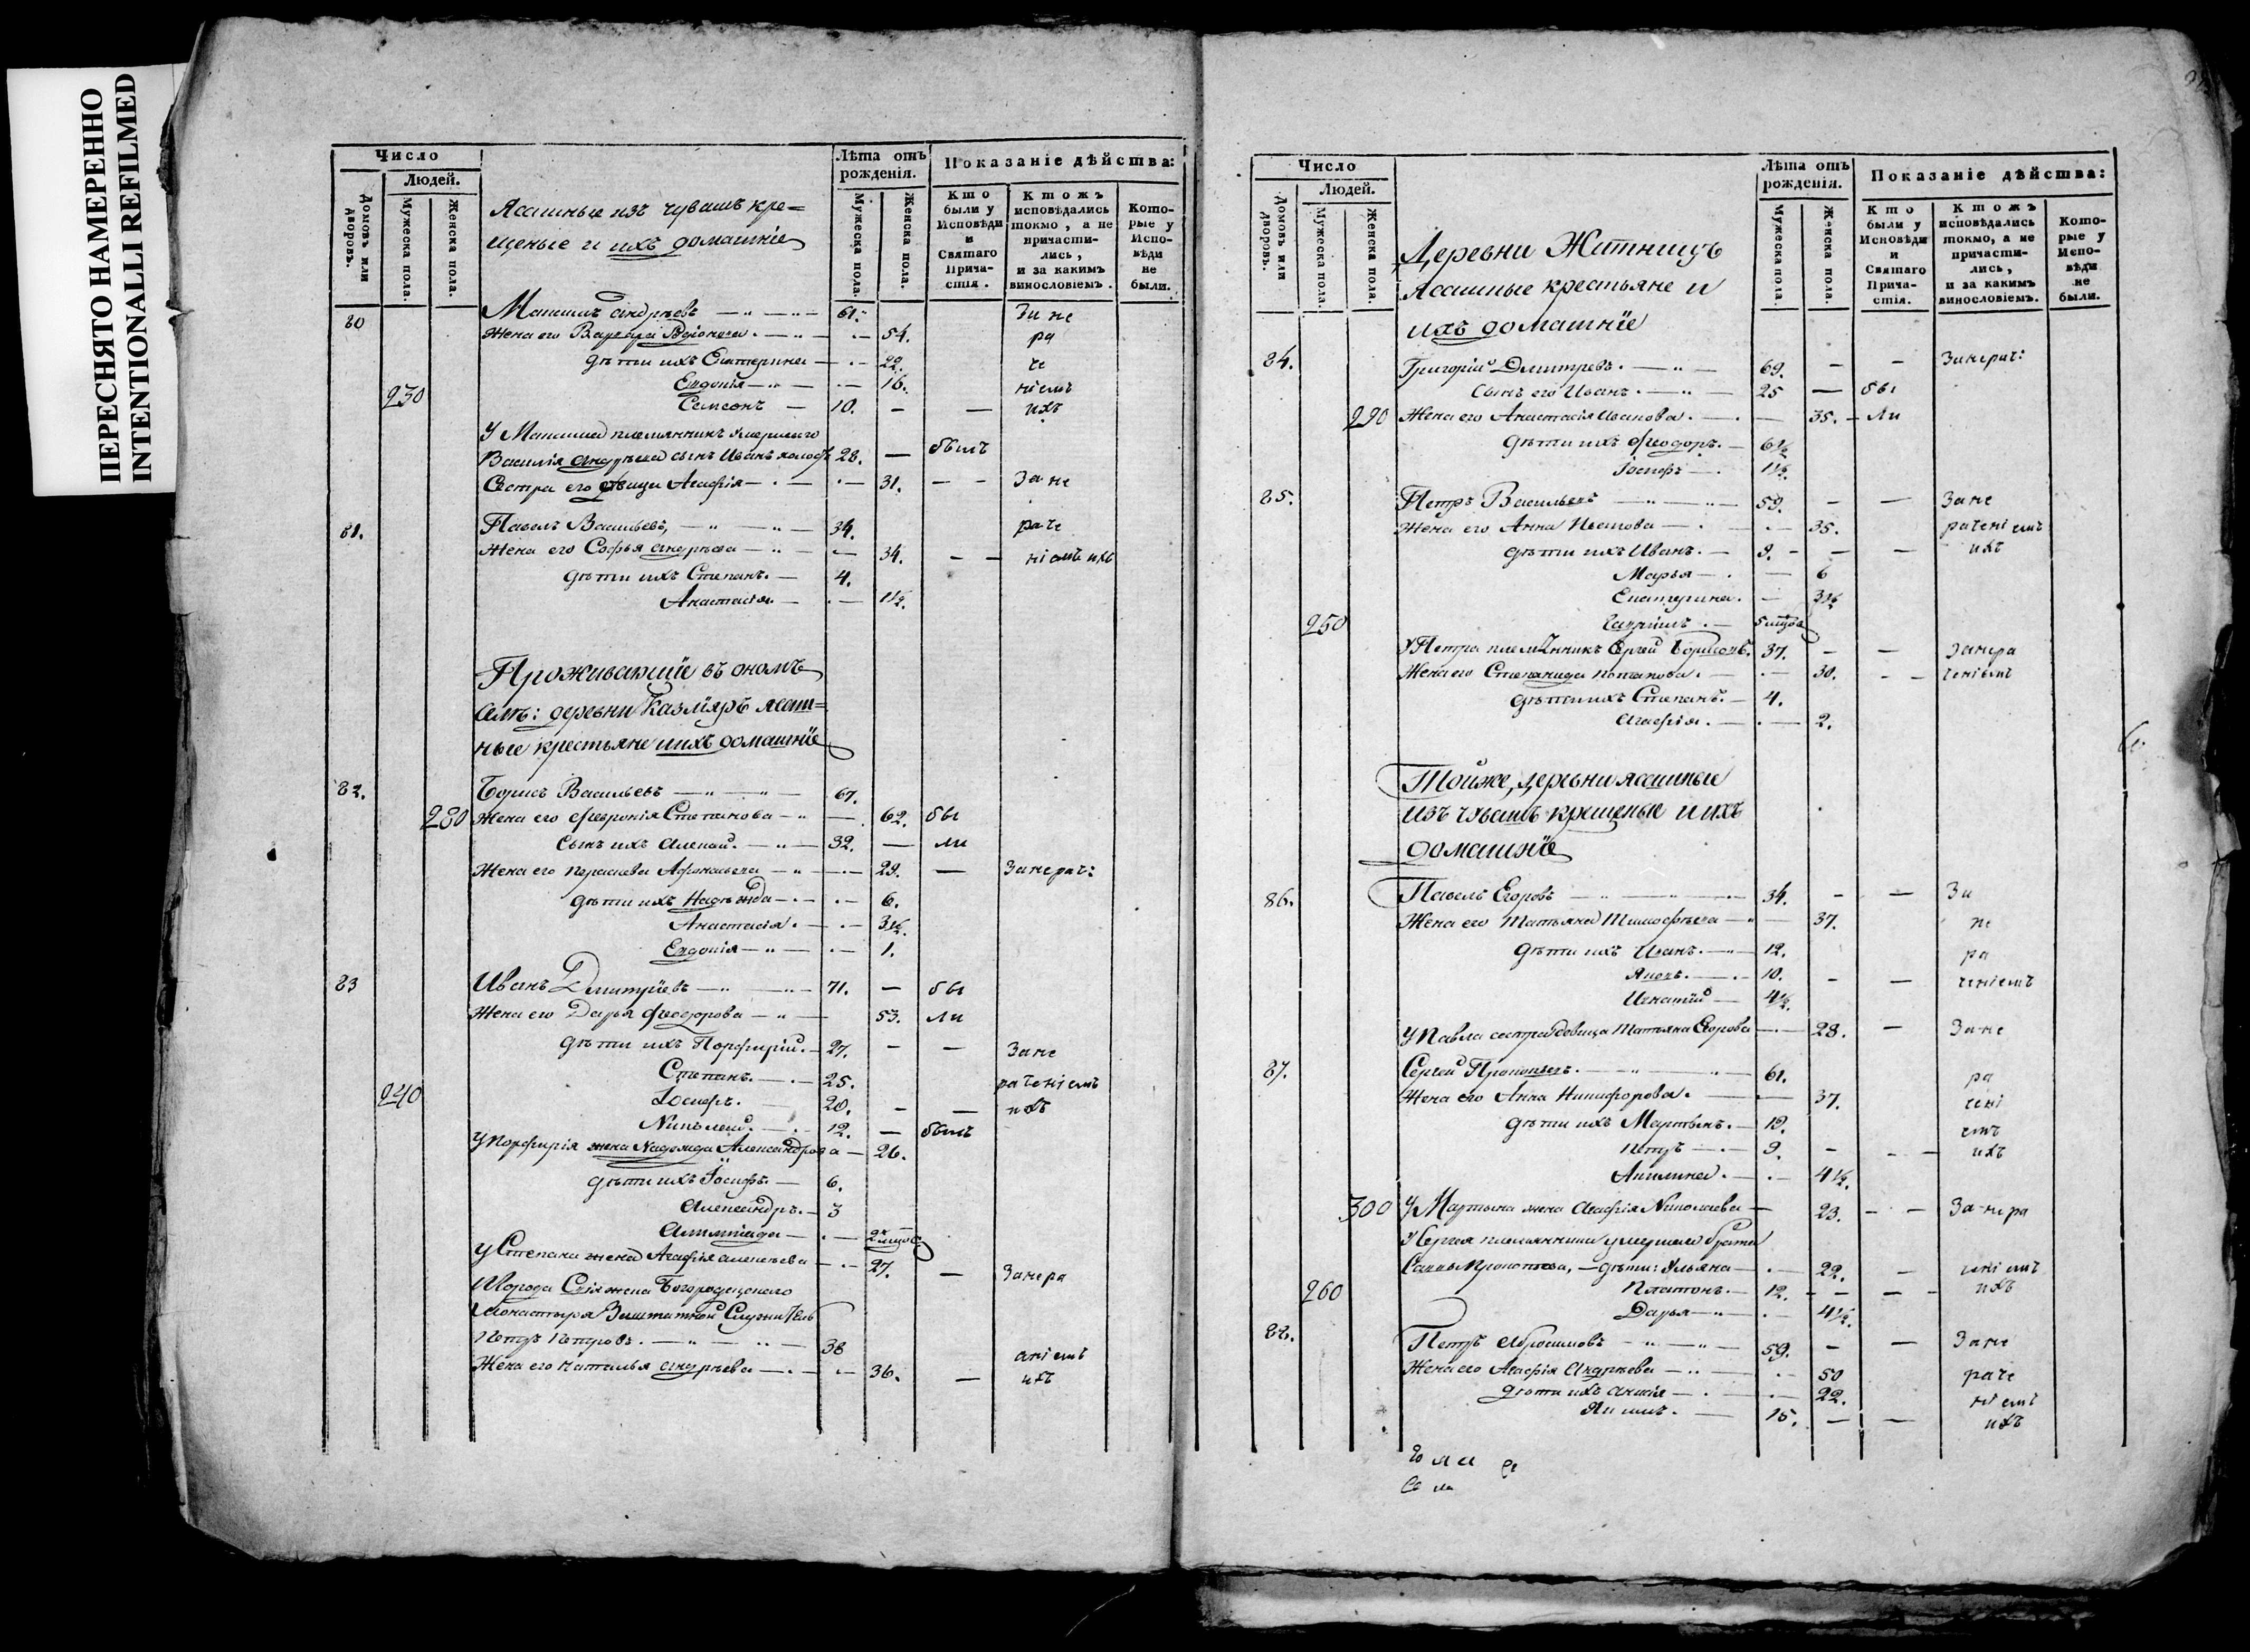 ПЕРЕСНЯТО НАМЕРЕННО
INTENTIONALLI REFILMED
Число
Людей.
Домовъ или дворовъ.
Мужеска пола.
Женска пола.
Лѣта отъ рожденія.
Мужеска пола.
Женска пола.
Показаніе дѣйства:
Кто были у Исповѣди и Святаго Прича-стія.
Ктожъ исповѣдались токмо, а не причасти-лись, и за какимъ винословіемъ.
Кото-рые у Испо-вѣди не были.
Ясашные изъ чувашъ кре=
щеные и ихъ домашніе
80 Андрѣевъ 61. За не
Жена его Варвара 54. ра
дѣти ихъ Екатерина 22. че
Евдокія 16. ніемъ
230 Самсонъ 10. ихъ
племянникъ умершаго
Василія Андрѣева сынъ Иванъ холостъ 28. былъ
Сестра его дѣвица Агафія 31. За не
81. Павелъ Васильевъ, 34. раче
Жена его Софья Андрѣева 34. ніемъ ихъ
дѣти ихъ Степанъ. 4.
Анастасія 1½.
Проживающіе въ ономъ
селѣ: деревни Казмяръ ясаш=
ные крестьяне и ихъ домашніе
82. Борисъ Васильевъ 67.
280 Жена его Февронія Степанова 62. бы
Сынъ ихъ Алексѣй. 32. ли
Жена его Параскева Афонасьева 29. За нерач:
дѣти ихъ Надежда 6.
Анастасія. 3½.
Евдокія 1.
83 Иванъ Димитріевъ 71. бы
Жена его Дарья Феодорова 53. ли
дѣти ихъ Порфирій. 27. За не
Степанъ. 25. раченіемъ
240 Іосифъ. 20. ихъ
Николай. 12. былъ
У Порфирія жена Надежда Александрова 26.
дѣти ихъ Іосифъ. 6.
Александръ. 3
Олимпіада 2хъ мѣсяц
У Степана жена Агафія Алексѣева 27. За нера
Города Свіяжска Богородицкаго
Монастыря Заштатной Служитель
Петръ Петровъ. 38
Жена его Наталья Андрѣева 36. ченіемъ ихъ
Число
Людей.
Домовъ или дворовъ.
Мужеска пола.
Женска пола.
Лѣта отъ рожденія.
Мужеска пола.
Женска пола.
Показаніе дѣйства:
Кто были у Исповѣди и Святаго Прича-стія.
Ктожъ исповѣдались токмо, а не причасти-лись, и за какимъ винословіемъ.
Кото-рые у Испо-вѣди не были.
Деревни Житницъ
Ясашные крестьяне и
ихъ домашніе
84. Григорій Димитревъ. 69. За нерач:
Сынъ его Иванъ. 25 бы
290 Жена его Анастасія Иванова. 35. ли
дѣти ихъ Феодоръ. 6½
Іосифъ 1½.
85. Петръ Васильевъ 59. За не
Жена его Анна 35. раченіемъ
дѣти ихъ Иванъ. 9. ихъ
Марья 6
Екатерина. 3½
250 Гавріилъ. 5
У Петра племянникъ Сергей Борисовъ. 37. За нера
Жена его Степанида Потапова. 30. ченіемъ
дѣти ихъ Степанъ. 4.
Агафія. 2.
Тойже, деревни ясашные
изъ чувашъ крещеные и ихъ
домашніе
86. Павелъ Егоровъ 34. За
Жена его Татьяна Тимофѣева 37. не
дѣти ихъ Иванъ. 12. ра
Яковъ. 10. ченіемъ
Игнатій 4½.
У Павла сестра дѣвица Татьяна Егорова 28. За не
87. Сергей Прокопьевъ. 61. ра
Жена его Анна Никифорова. 37. чені
дѣти ихъ Мартынъ. 19. емъ
Петръ 9. ихъ
Акилина. 4½.
300 У Мартына жена Агафія Николаева 23. За нера
У Сергея племянники умершаго брата
Саввы Прокопьева, дѣти: Ульяна 22. ченіемъ
260 Платонъ. 12. ихъ
Дарья 4½.
88. Петръ Абросимовъ 59. За не
Жена его Агафія Андрѣева 50 раче
дѣти ихъ Анисія 22. ніемъ
Якимъ. 15. ихъ